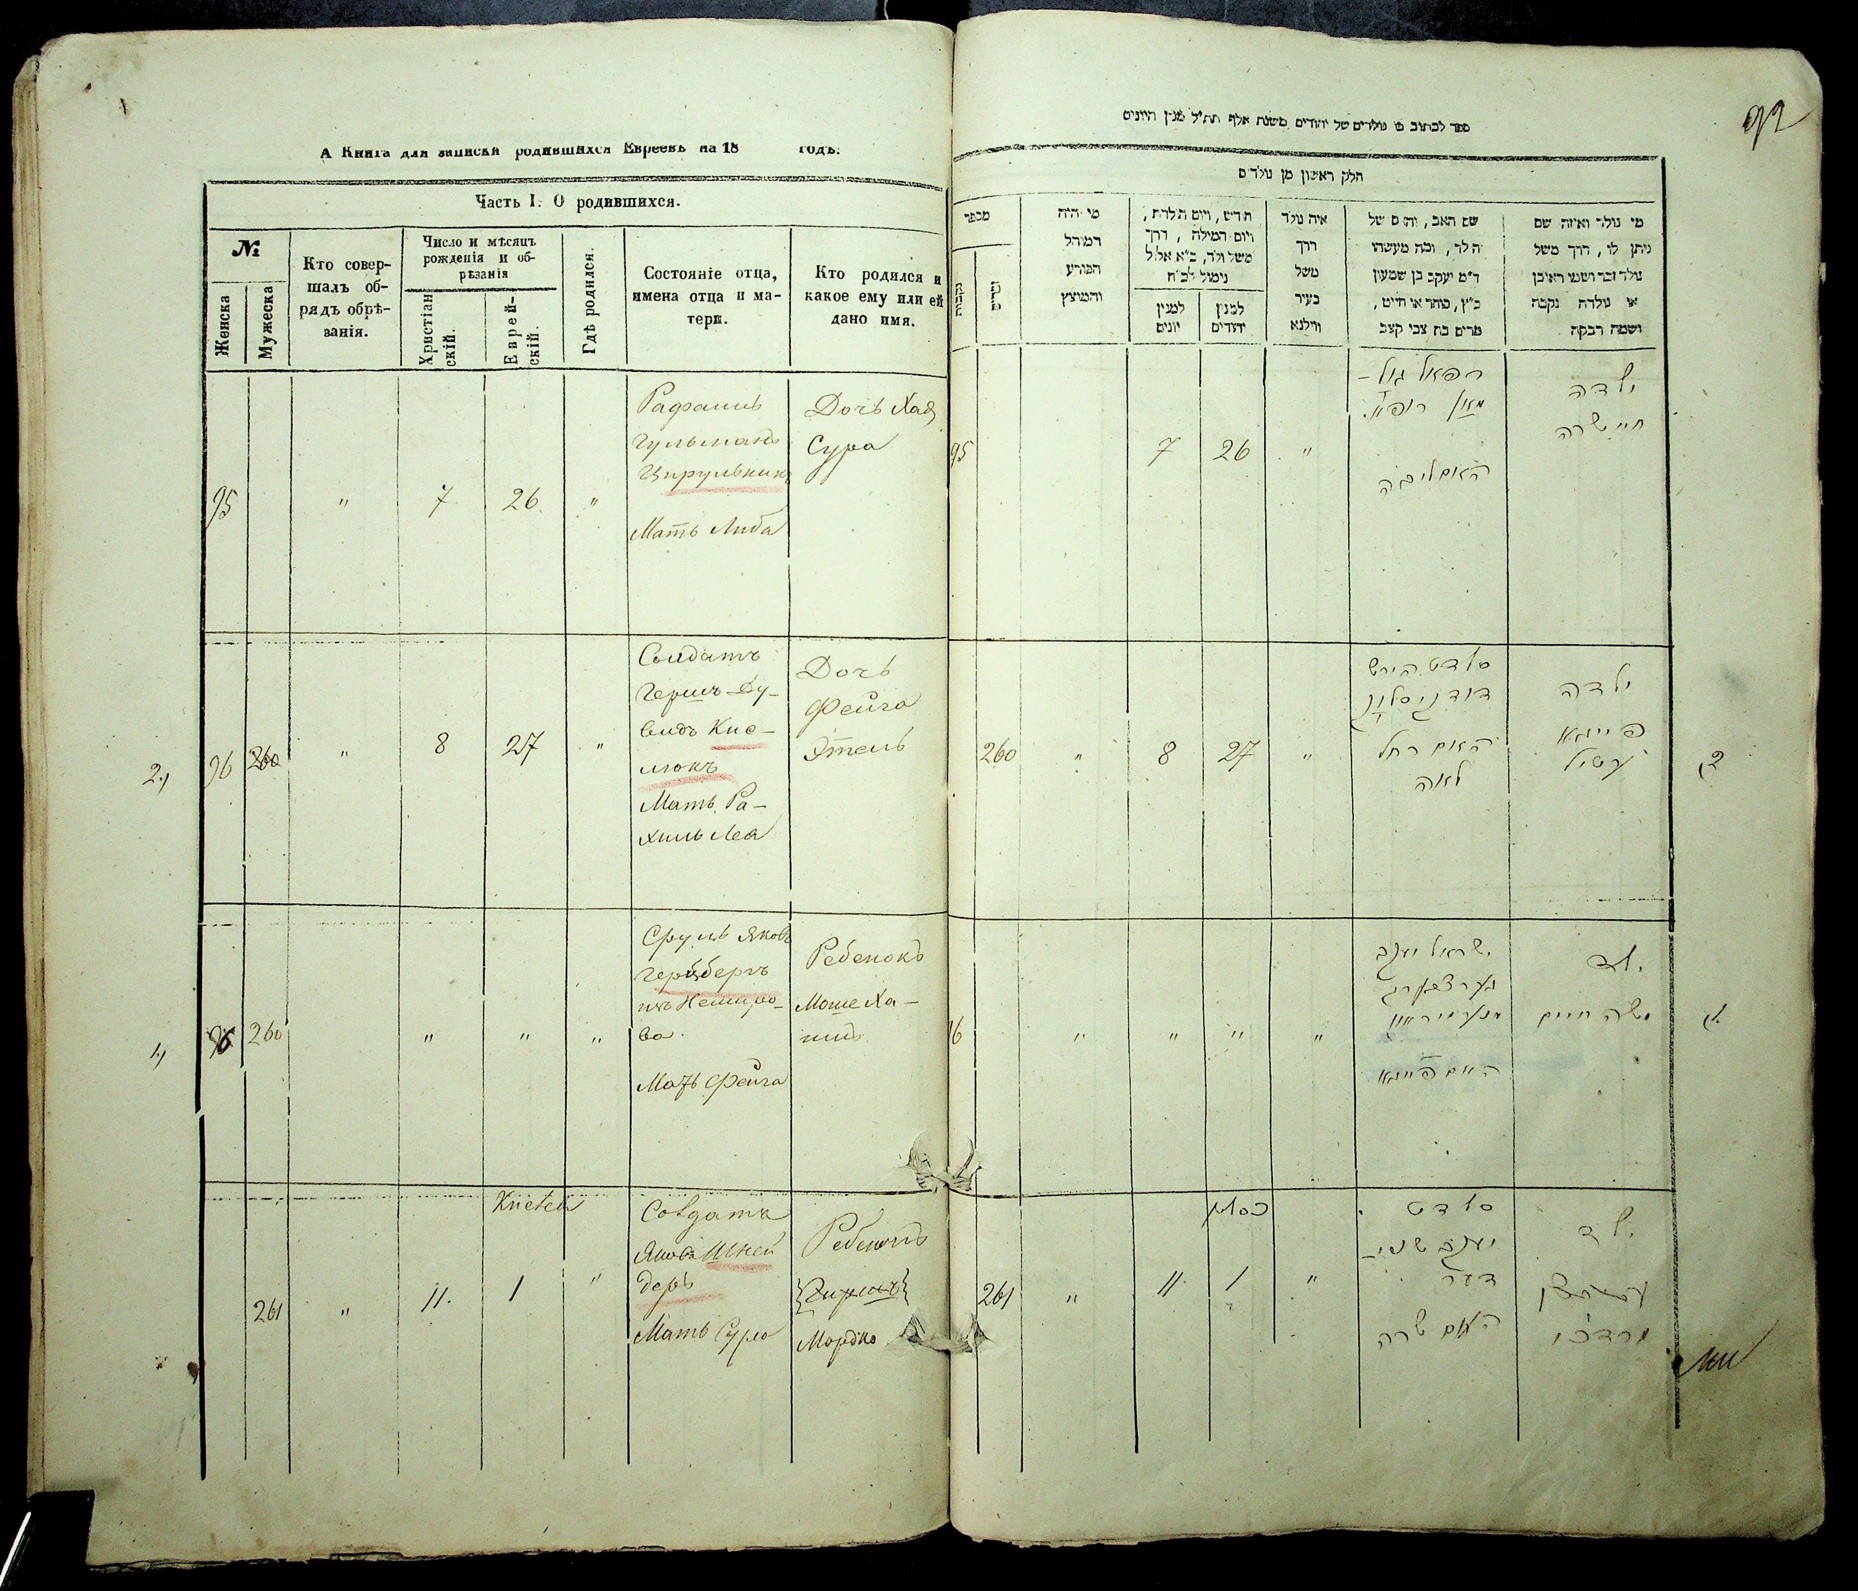 А Книга для записки родившихся Евреевъ на 18 годъ.
Часть I. О родившихся.
№
Женска
Мужеска
Кто совер-
шалъ об-
рядъ обрѣ-
занія.
Число и мѣсяцъ
рожденія и об-
рѣзанія
Христіан
скій.
Еврей-
скій.
Гдѣ родился.
Состояніе отца,
имена отца и ма-
тери.
Кто родился и
какое ему или ей
дано имя.
95
"
7
26
"
Рафаиль
Гульманъ
Цирульникъ
Мать Либа
Дочь Хая
Сура
2.)
96
260
"
8
27
"
Солдатъ
Гершъ-Ду-
видъ Кис-
люкъ
Мать Ра-
хиль Леа
Дочь
Фейга
Этель
1.)
96
260
"
"
"
Сруль Яковъ
Герцбергъ
изъ Немиро-
ва.
Мать Фейга
Ребенокъ
Моше Ха-
имъ
261
"
11.
1
"
Солдатъ
Яковъ Шней
деръ
Мать Сура
Ребенокъ
Мордко
92
ספר לכתוב בו נולדים של יהודים משנת אלף תת"ל מנין היונים
חלק ראשון מן נולדים
מספר
נקבות
זכרים
מי היה
המוהל
הפורע
והמוצץ
חדש, ויום הולדת,
ויום המילה, דרך
משל ולד, כ"א אלול
נימול לכ"ח
למנין
יונים
למנין
יהודים
איה נולד
דרך
משל
בעיר
ווילנא
שם האב, והאם של
הילד, ומה מעשהו
ד"מ יעקב בן שמעון
כ"ץ, סוחר או חייט,
מרים בת צבי קצב
מי נולד ואיזה שם
ניתן לו, דרך משל
נולד זכר ושמו ראובן
או נולדה נקבה
ושמה רבקה
95
7
26
"
רפאל גול-
מאן רופא.
האם ליבה
ילדה
חיי שרה
260
"
8
27
"
סלדט הירש
דוד קיסלוק
האם רחל
לאה
ילדה
פייגא
עטיל
96
"
"
"
"
ישראל יעקב
הערצבערג
האם פייגא
ילד
משה חיים
261
"
11.
כסלו
1
"
סלדט
יעקב שניי-
דער
האם שרה
ילד
מרדכי